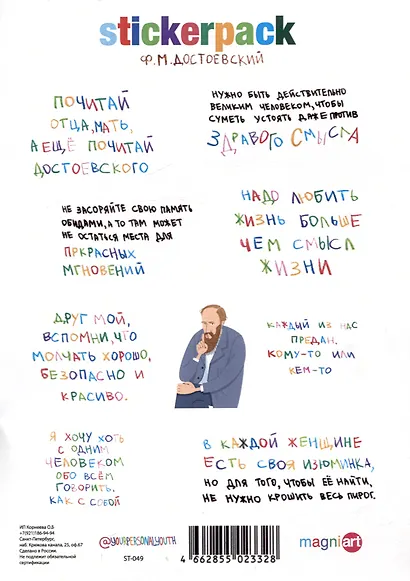 stickerpack
Ф.М.ДОСТОЕВСКИЙ
ПОЧИТАЙ
ОТЦА, МАТЬ,
А ЕЩЁ ПОЧИТАЙ
ДОСТОЕВСКОГО
НУЖНО БЫТЬ ДЕЙСТВИТЕЛЬНО
ВЕЛИКИМ ЧЕЛОВЕКОМ, ЧТОБЫ
СУМЕТЬ УСТОЯТЬ ДАЖЕ ПРОТИВ
ЗДРАВОГО СМЫСЛА
НЕ ЗАСОРЯЙТЕ СВОЮ ПАМЯТЬ
ОБИДАМИ, А ТО ТАМ МОЖЕТ
НЕ ОСТАТЬСЯ МЕСТА ДЛЯ
ПРКРАСНЫХ
МГНОВЕНИЙ
НАДО ЛЮБИТЬ
ЖИЗНЬ БОЛЬШЕ
ЧЕМ СМЫСЛ
ЖИЗНИ
ДРУГ МОЙ,
ВСПОМНИ, ЧТО
МОЛЧАТЬ ХОРОШО,
БЕЗОПАСНО И
КРАСИВО.
КАЖДЫЙ ИЗ НАС
ПРЕДАН.
КОМУ-ТО ИЛИ
КЕМ-ТО
Я ХОЧУ ХОТЬ
С ОДНИМ
ЧЕЛОВЕКОМ
ОБО ВСЁМ
ГОВОРИТЬ,
КАК С СОБОЙ
В КАЖДОЙ ЖЕНЩИНЕ
ЕСТЬ СВОЯ ИЗЮМИНКА,
НО ДЛЯ ТОГО, ЧТОБЫ ЕЁ НАЙТИ,
НЕ НУЖНО КРОШИТЬ ВЕСЬ ПИРОГ.
ИП Корнеева О.Б
+7(921)186-94-94
Санкт-Петербург,
наб. Крюкова канала, 25, оф.67
Сделано в России.
Не подлежит обязательной
сертификации
@YOURPERSONALYOUTH
ST-049
4 662855 023328
magniart